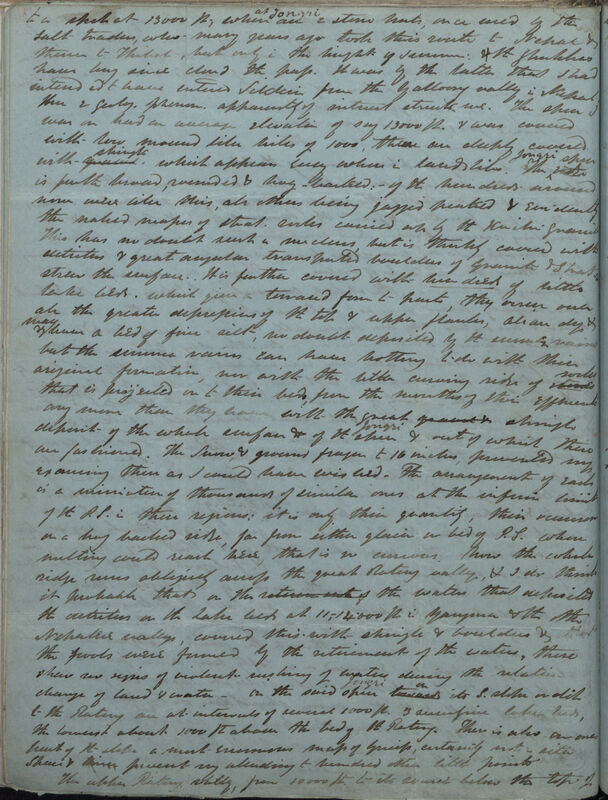 at Jongri
to a spur at 13000 ft, where are 2 stone huts, once used by the
salt traders, who many years ago took this route to Nepal &
thence to Thibet, but only in the height of summer. & the Ghurkhas
have long since closed the pass. It was by the latter that I had
intended to have entered Sikkim from the Yalloong valley in Nepal.
Here 2 geolog. phenom. apparently of interest struck me. The spur
was on had an average elevation of say 13000 ft & was covered
with low mound like hills of 1000, these are deeply covered
shingle Jongri
with which appears every where in land slips. The spur
is further broad, rounded & hog-backed - of the hundreds around
none were like this, all others being jagged peaked & evidently
the naked masses of strat. rocks carried up by the Granite
This has no doubt such a nucleus, but is thickly covered with
detritus & great angular transported boulders of Granite &
strew the surface. It is further covered with hundreds of little
lake beds, which give a terraced form to parts, they occur over
all the greater depressions of the top & upper flanks, all are dry &
may have a bed of fine silt, no doubt deposited by the summer rains
but the summer rains can have nothing to do with their
original formation, nor with the little curving ridge of
that is projected on to their beds from the mouths of their effluents
any more than they have with the great shingle
Jongri
deposit of the whole surface & of the spur & out of which these
are fashioned. The Snow & ground frozen to 16 inches, prevented my
examining them as I could have wished. The arrangement of each
is a miniature of thousands of similar ones at the inferior limit
of the P.S. in these regions: it is only their quantity, their occurrence
on a hog backed ridge, far from either glacier or bed of P.S. whose
melting could reach here, that is so curious. Now the whole
ridge runs obliquely across the great Ratong valley, & I do think
it probable that on the of the waters that deposited
the detritus on the lake beds at 11-12,000 ft in Yangma & the other
Nepalese valleys, covered this with shingle & boulders &
the pools were formed by the retirement of the waters, these
shew no signs of violent rushing of waters during the relative
change of land & water. Jongri
on the said spur on its S. slope or dip
to the Ratong are at intervals of several 1000 ft 3 successive lake beds,
the lowest about 1000 ft above the bed of the Ratong. There is also on one
part of the slope a most enormous mass of Gneiss, certainly not in situ
Snow & prevent my alluding to hundred other little points
The upper Ratong valley, from 10000 ft to its source below the top of